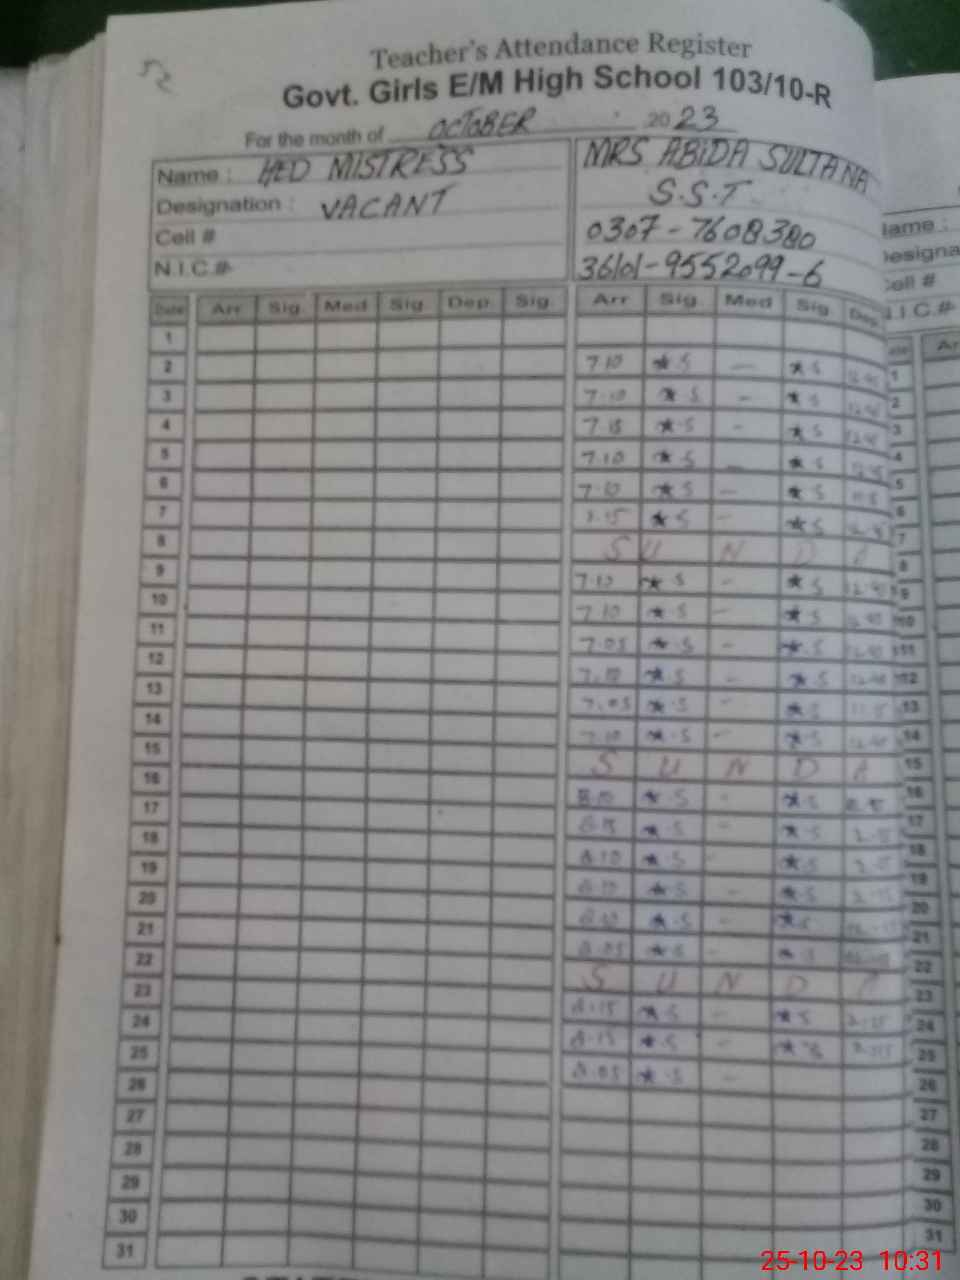 52
Teacher's Attendance Register
Govt. Girls E/M High School 103/10-R
For the month of OCTOBER 2023
Name : HED MISTRESS
MRS ABIDA SULTANA
Designation : VACANT
S.S.T
Cell #
0307-7608380
N.I.C.#
36101-9552099-6
Name :
Designa
Cell #
N.I.C.#
Date Arr Sig. Med Sig. Dep. Sig. Arr Sig. Med Sig Dep. Ar
1
2 7.10 S — S 12.45 1
3 7.10 S – S 12.45 2
4 7.15 S – S 12.45 3
5 7.10 S – S 12.45 4
6 7.10 S – S 5
7 7.15 S – S 6
8 S U N D A 7
9 7.10 S – S 12.45 9
10 7.10 S – S 10
11 7.05 S – S 12.45 11
12 7.10 S – S 12
13 7.05 S – S 13
14 7.10 S – S 14
15 S U N D A 15
16 8.10 S – S 16
17 8.15 S – S 17
18 8.10 S – S 18
19 8.10 S – S 19
20 8.10 S – S 20
21 8.05 S – S 21
22 S U N D A 22
23 8.15 S – S 23
24 8.15 S – S 24
25 8.05 S – 25
26 26
27 27
28 28
29 29
30 30
31 31
25-10-23 10:31